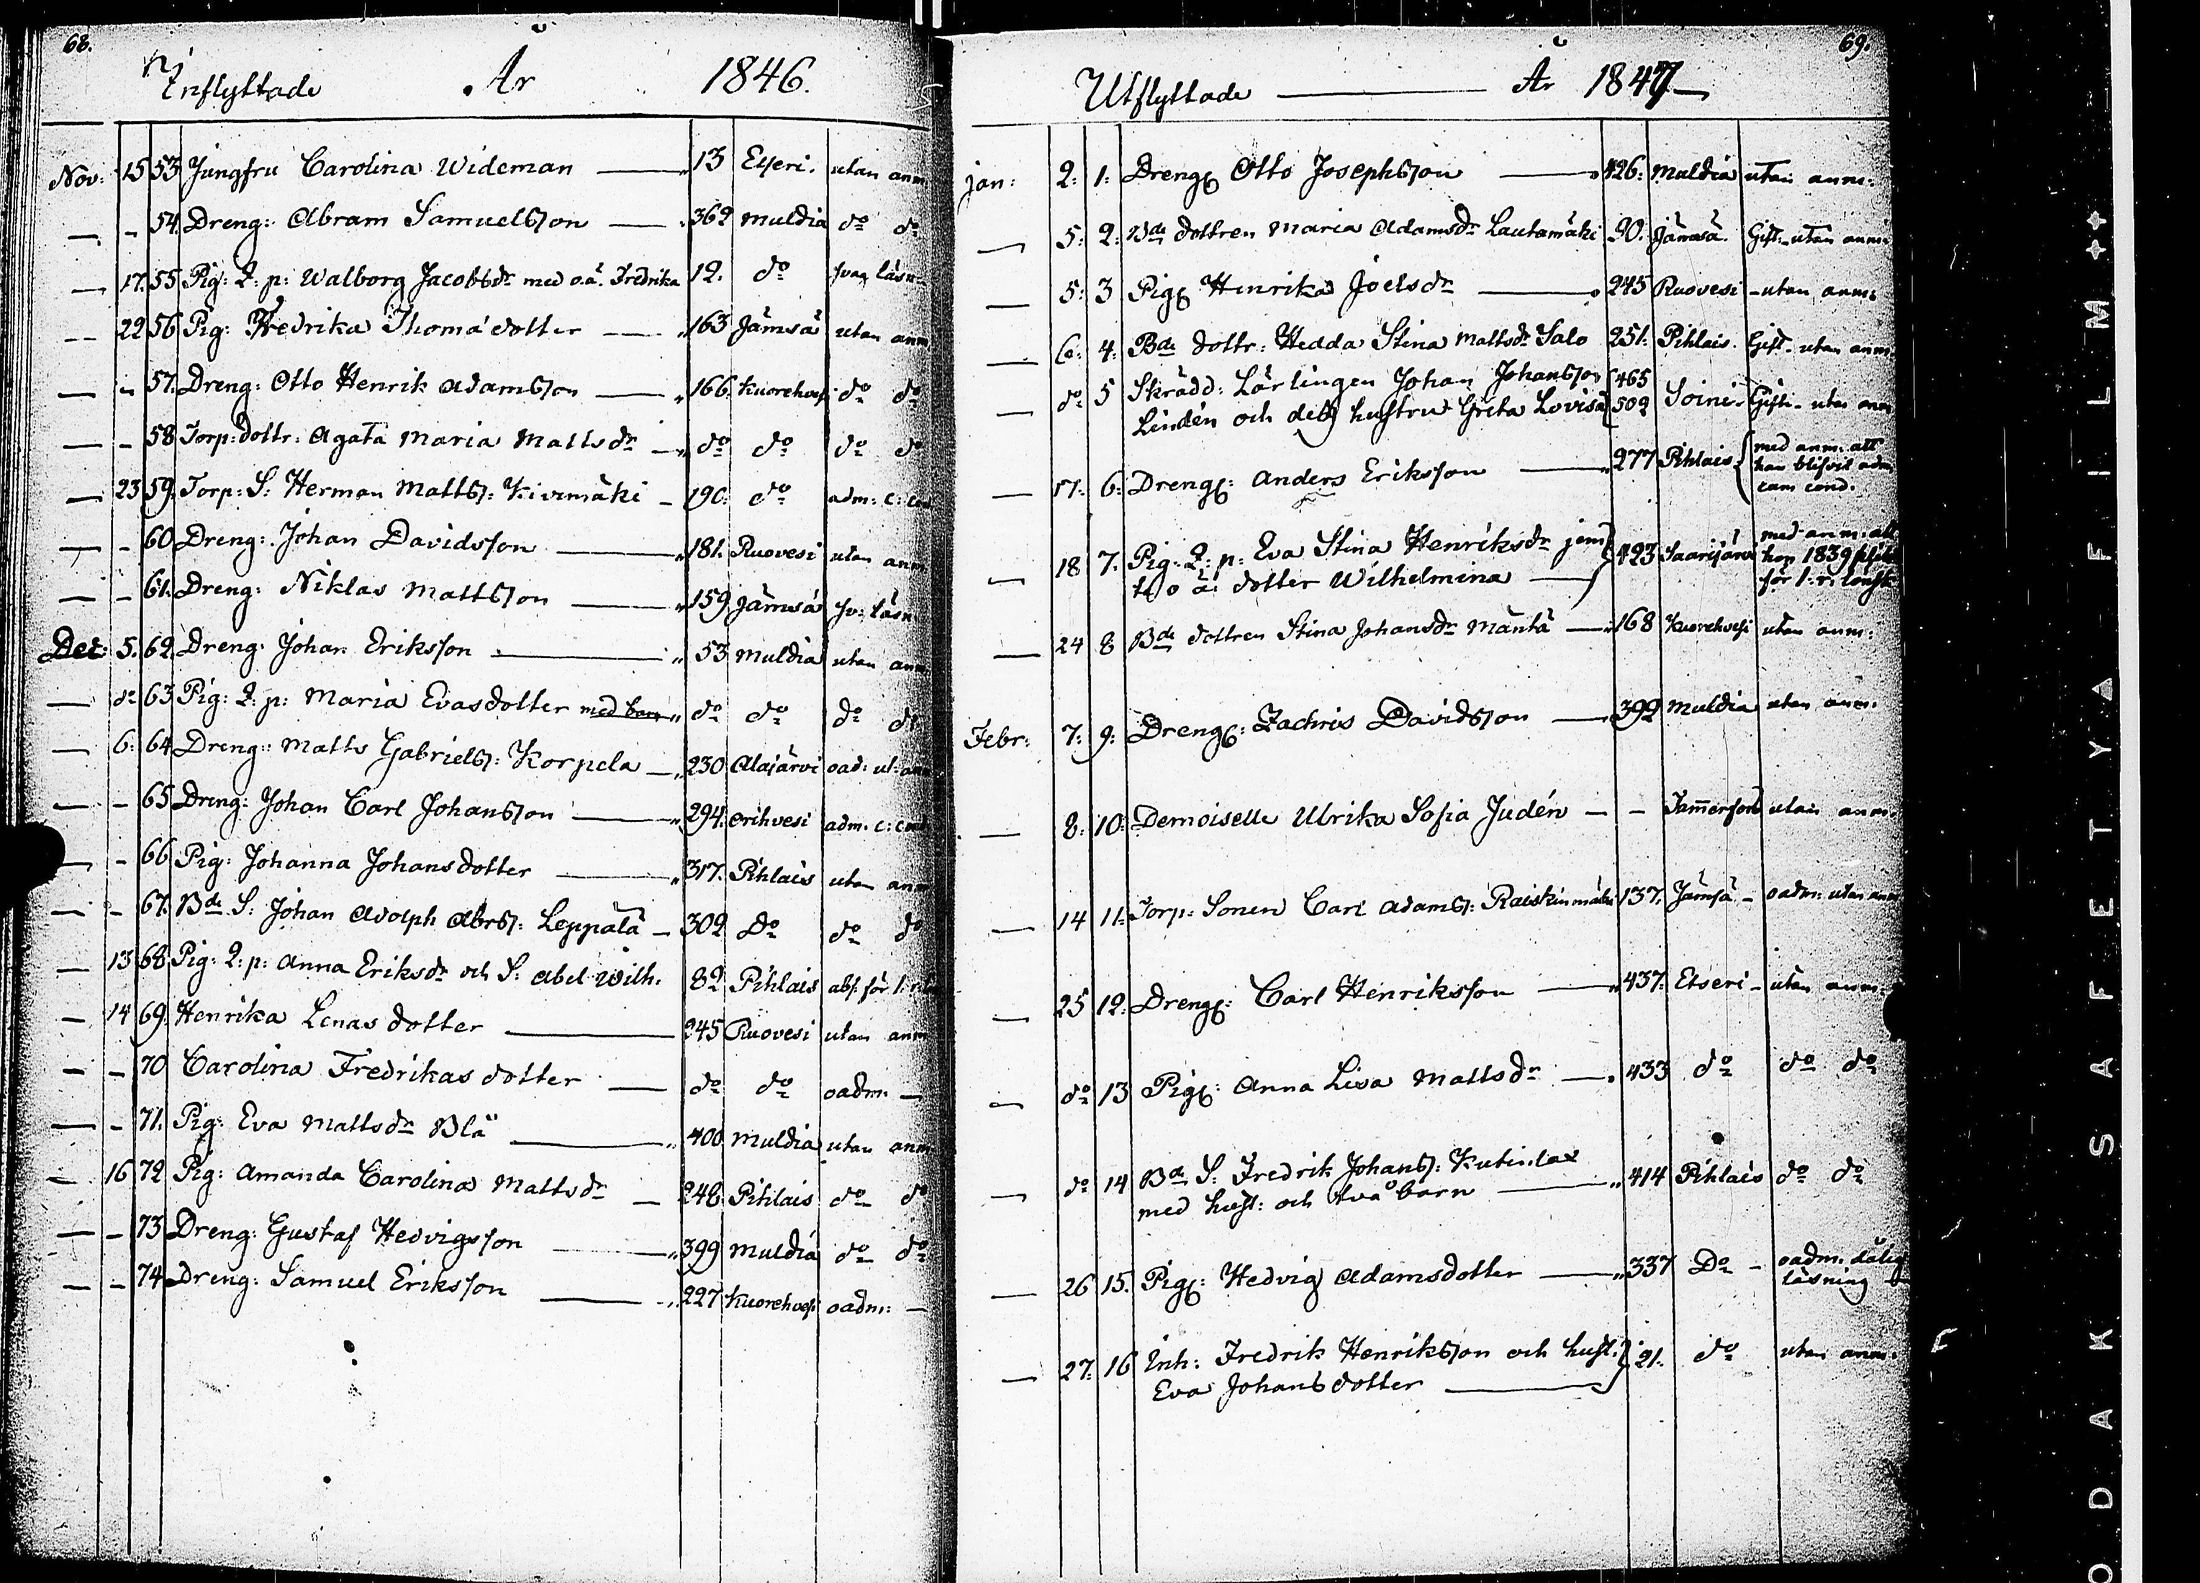 68.
Inflyttade År 1846.
Nov: 15 53 Jungfru Carolina Wideman 13 Etseri. utan anm
54. Dreng: Abram Samuelsson 362 Muldia do do
17. 55 Pig: Q: p: Walborg Jacobsdr med o.ä. Fredrika 12. do svag läsn
22 56 Pig: Fredrika Thomædotter 163 Jämsä utan anm
57. Dreng: Otto Henrik Adamsson 166. Kuorehvesi do do
58 Torp: dottr: Agata Maria Mattsdr do do do do
23 59. Torp: S: Herman Matts: Kivimäki 190. do adm: c: con
60 Dreng: Johan Davidsson 181. Ruovesi utan anm
61. Dreng: Niklas Mattsson 159 Jämsä sv: läsn
Dec: 5. 62. Dreng: Johan Eriksson 53 Muldia utan anm
do 63 Pig: Q: p: Maria Evasdotter med barn do do do do
6: 64 Dreng: Matts Gabriels: Korpela 230 Alajärvi oad: ut: anm
65 Dreng: Johan Carl Johansson 294. Orihvesi adm. c: cond
66 Pig: Johanna Johansdotter 317. Pihlais utan anm
67. Bde S: Johan Adolph Abrs: Leppälä 302 Do do do
13 68 Pig: Q: p: Anna Eriksdr och S: Abel Wilh. 82 Pihlais abs. för 1:
14 69. Henrika Lenasdotter 245 Ruovesi utan anm
70 Carolina Fredrikasdotter do do oadm:
71. Pig: Eva Mattsdr Blå 400 Muldia utan anm
16 72 Pig: Amanda Carolina Mattsdr 248 Pihlais do do
73 Dreng: Gustaf Hedvigsson 399 Muldia do do
74 Dreng: Samuel Eriksson 227 Kuorehvesi oadm:
69.
Utflyttade År 1847
Jan: 2: 1: Dreng: Otto Josephsson 426: Muldia utan anm:
5: 2: Bde dottren Maria Adamsdr Lautamäki 90. Jämsä. Gift. utan anm:
5: 3 Pig: Henrika Joelsdr 245 Ruovesi utan anm:
6: 4: Bde dottr: Hedda Stina Mattsdr Salo 251: Pihlais. Gift. utan anm.
do 5 Skrädd: Lärlingen Johan Johansson 465
Lindén och dess hustru Greta Lovisa 502 Soini Gift. utan anm
17: 6: Dreng: Anders Eriksson 277 Pihlais med anm: att
han blifvit adm
cum cond.
18 7. Pig: Q: p: Eva Stina Henriksdr jem
te o ä: dotter Wilhelmina 423 Saarijärvi med anm: att
hon 1839
för 1: r: lönsk
24 8 Bde dottren Stina Johansdr Mäntä 168 Kuorehvesi utan anm:
Febr: 7: 9: Dreng: Zachris Davidsson 392 Muldia utan anm.
8: 10: Demoiselle Ulrika Sofia Judén Tammerfors utan anm.
14 11: Torp: Sonen Carl Adams: Raiskinmäki 137. Jämsä oadm: utan anm
25 12: Dreng: Carl Henriksson 437: Etseri utan anm.
do 13 Pig: Anna Lisa Mattsdr 433 do do do
do 14 Bde S: Fredrik Johans: Kutinlax
med hust: och två barn 414 Pihlais do do
26 15. Pig: Hedvig Adamsdotter 337 Do oadm. dålig
läsning
27: 16 Inh: Fredrik Henriksson och hust:
Eva Johansdotter 21. do utan anm:
ODAK SAFETY FILM